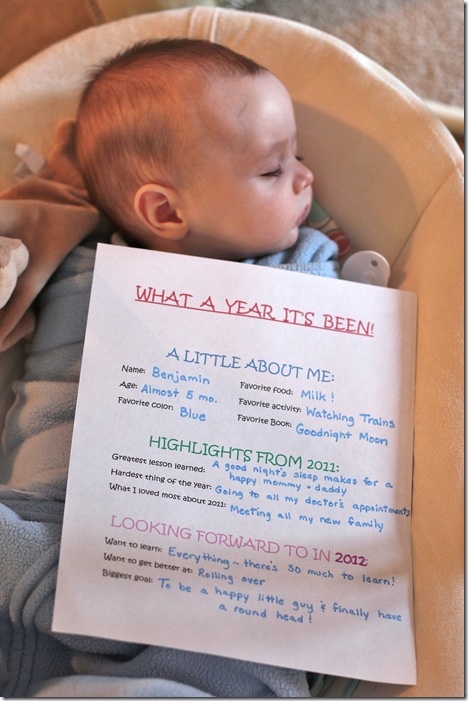 WHAT A YEAR IT'S BEEN!
A LITTLE ABOUT ME:
Name: Benjamin
Age: Almost 5 mo.
Favorite color: Blue
Favorite food: Milk!
Favorite activity: Watching Trains
Favorite Book: Goodnight Moon
HIGHLIGHTS FROM 2011:
Greatest lesson learned: A good night's sleep makes for a
happy mommy + daddy
Hardest thing of the year: Going to all my doctor's appointments
What I loved most about 2011: Meeting all my new family
LOOKING FORWARD TO IN 2012:
Want to learn: Everything ~ there's so much to learn!
Want to get better at: Rolling over
Biggest goal: To be a happy little guy & finally have
a round head!